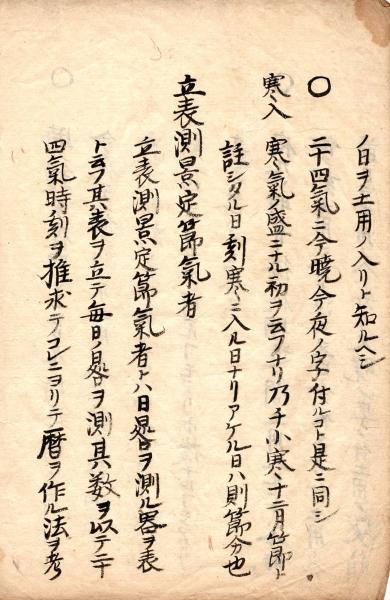 ノ日ヲ土用ノ入リト知ルヘシ
〇 二十四氣ニ今暁今夜ノ字付ルコト是ニ同シ
寒入 寒氣ノ盛ニナル初ヲ云フナリ乃チ小寒十二月節ト
註シタル日刻寒ニ入ル日ナリアケル日ハ則節分也
立表測景定節氣者
立表測景定節氣者トハ日晷ヲ測ル器ヲ表
ト云フ其表ヲ立テ毎日ノ晷ヲ測其数ヲ以テ二十
四氣時刻ヲ推求テコレニヨリテ暦ヲ作ル法ヲ考